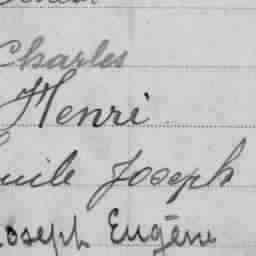 Charles
Henri
Joseph
Joseph Eugène